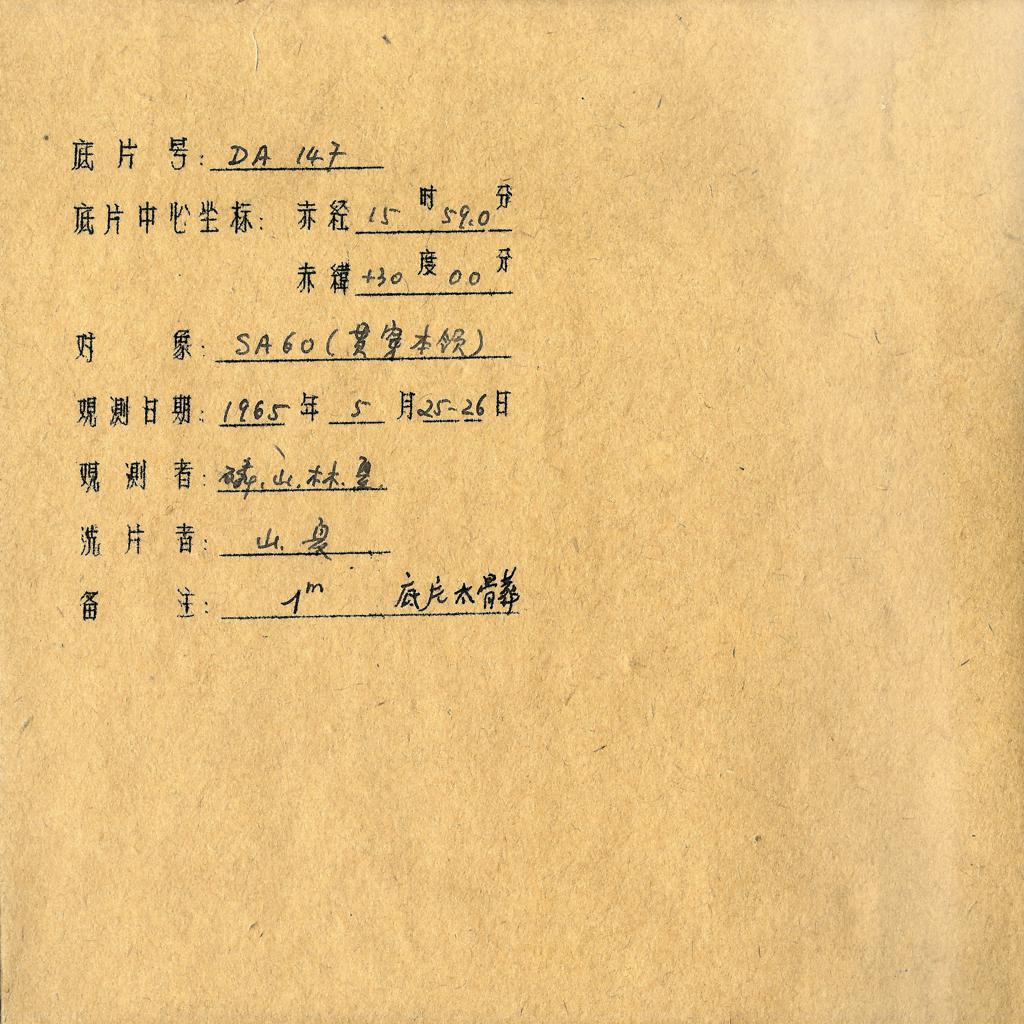 底片号: DA 147
底片中心坐标: 赤经 15 时 59.0 分
赤緯 +30 度 00 分
对象: SA60 (贯穿本领)
观测日期: 1965 年 5 月 25-26 日
观测者: 山. 林. 夏.
洗片者: 山. 夏
备注: 1m 底片太骨葬